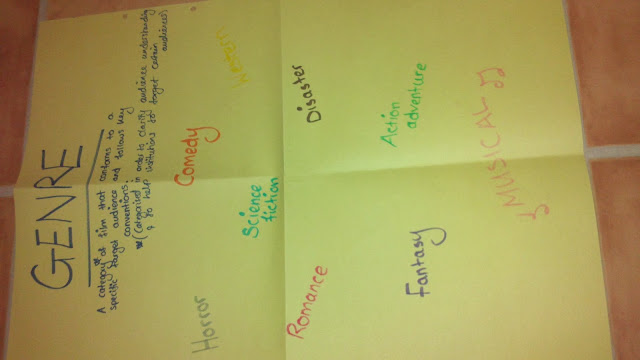 GENRE
A category* of film that conforms to a
specific target audience and follows key
conventions.
*(Categorised in order to clarify audience understanding
& to help institutions to target certain
audiences)
Horror
Comedy
Western
Science
fiction
Romance
Disaster
Fantasy
Action
adventure
MUSICAL